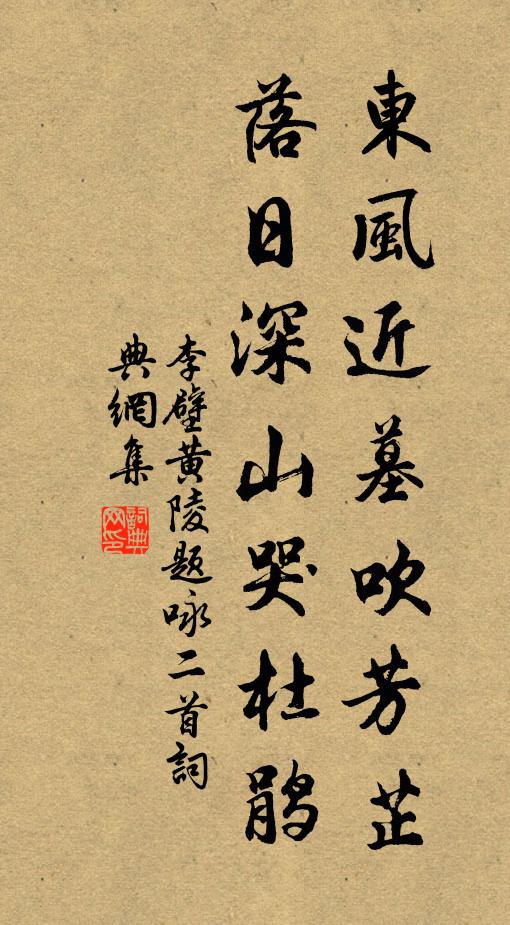 東風近墓吹芳芷
落日深山哭杜鹃
李壁黄陵题咏二首詞
典網集
詞典
网印